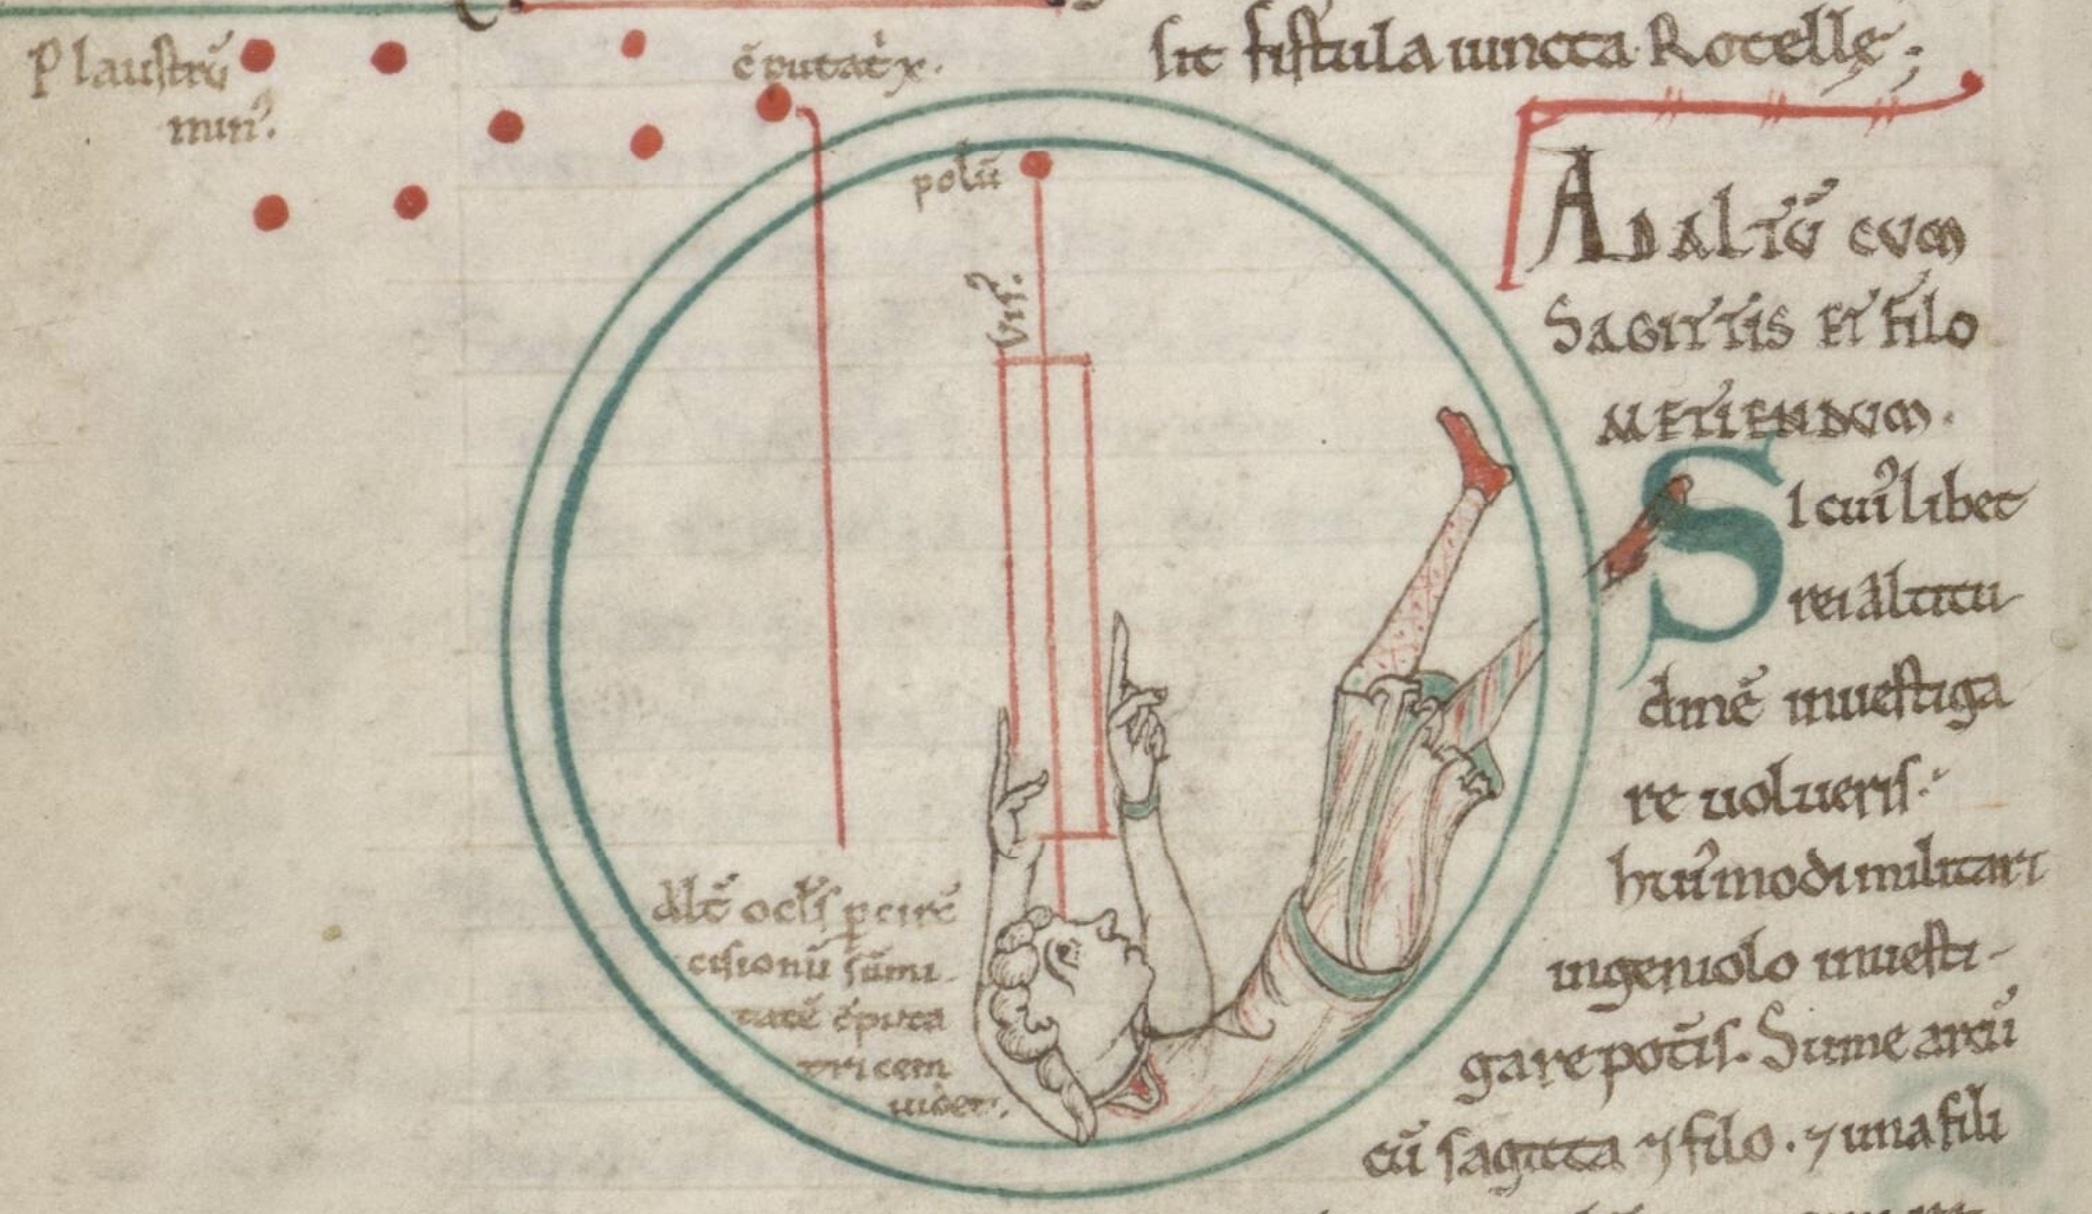 Plaustrū
min᷒.
c̄putat᷒x.
sit fistula iuncta Rotellę;
polū
VII᷒.
AD ALTŪ CUM
SAGITTIS ET FILO
METIENDUM.
SI cui᷒libet
rei altitu
dinē inuestiga
re uolueris.
hui᷒modi militari
ingeniolo inuesti-
gare potīs. Sume arcū
cū sagitta ⁊ filo. ⁊ una fili
Alt̄ ocl̄is ꝑ circ̄
cisionū sūmi-
tatē c̄puta
tricem
uidet.